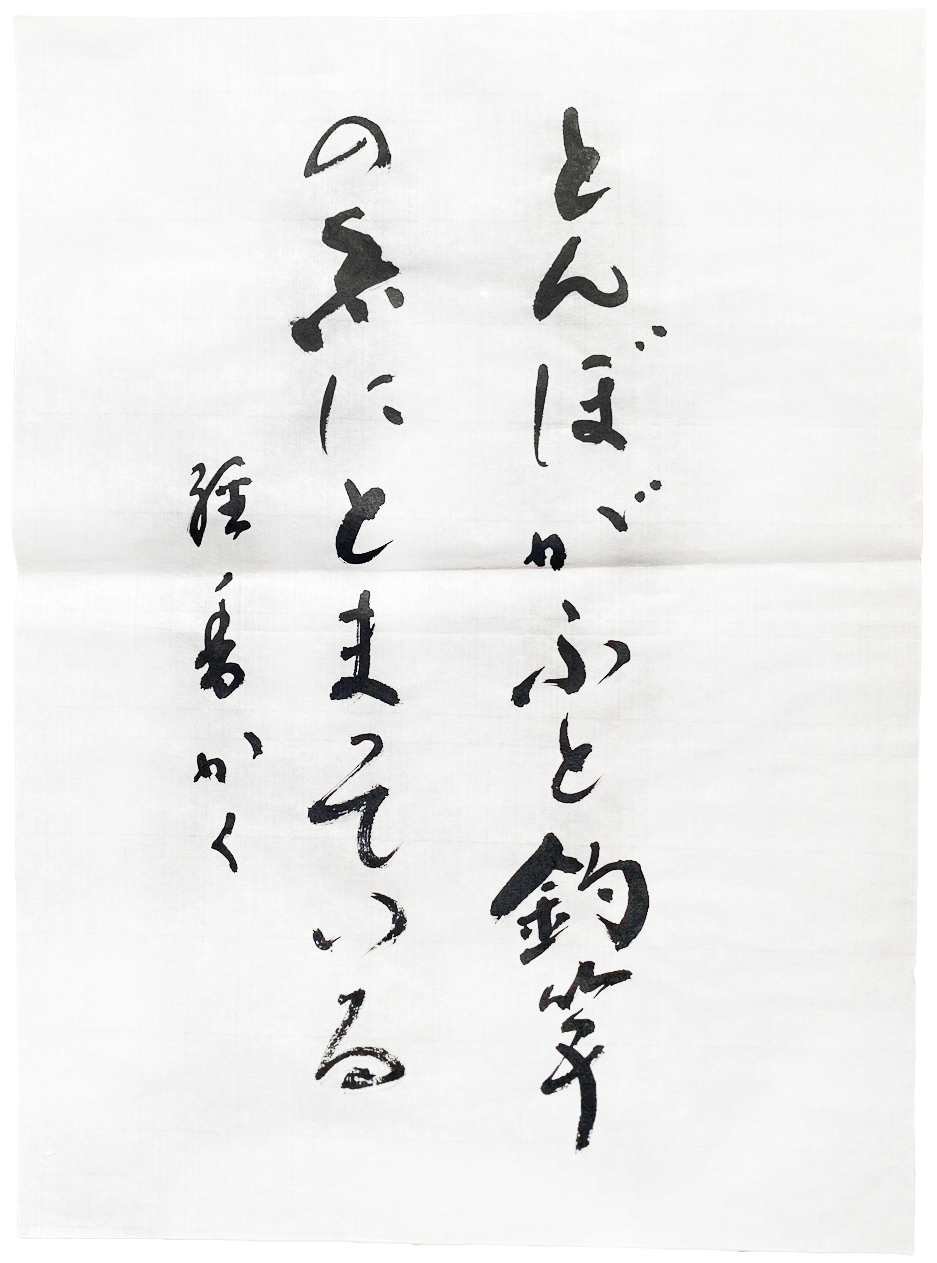 とんぼがふと釣竿
の糸にとまっている
経香かく